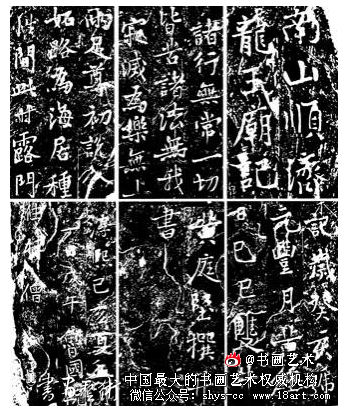 南山順濟
龍王廟記
諸行無常一切
皆苦諸法無我
寂滅為樂無上
兩足尊初說
妬路為海居種
性開此甘露門
記歲癸亥
元豐月
日己巳雙
黃庭堅撰
書
淳熙己亥夏五
戊午晉國
住持僧
@书画艺术
中国最大的书画艺术权威机构
微信公众号：shys-cc www.18art.com